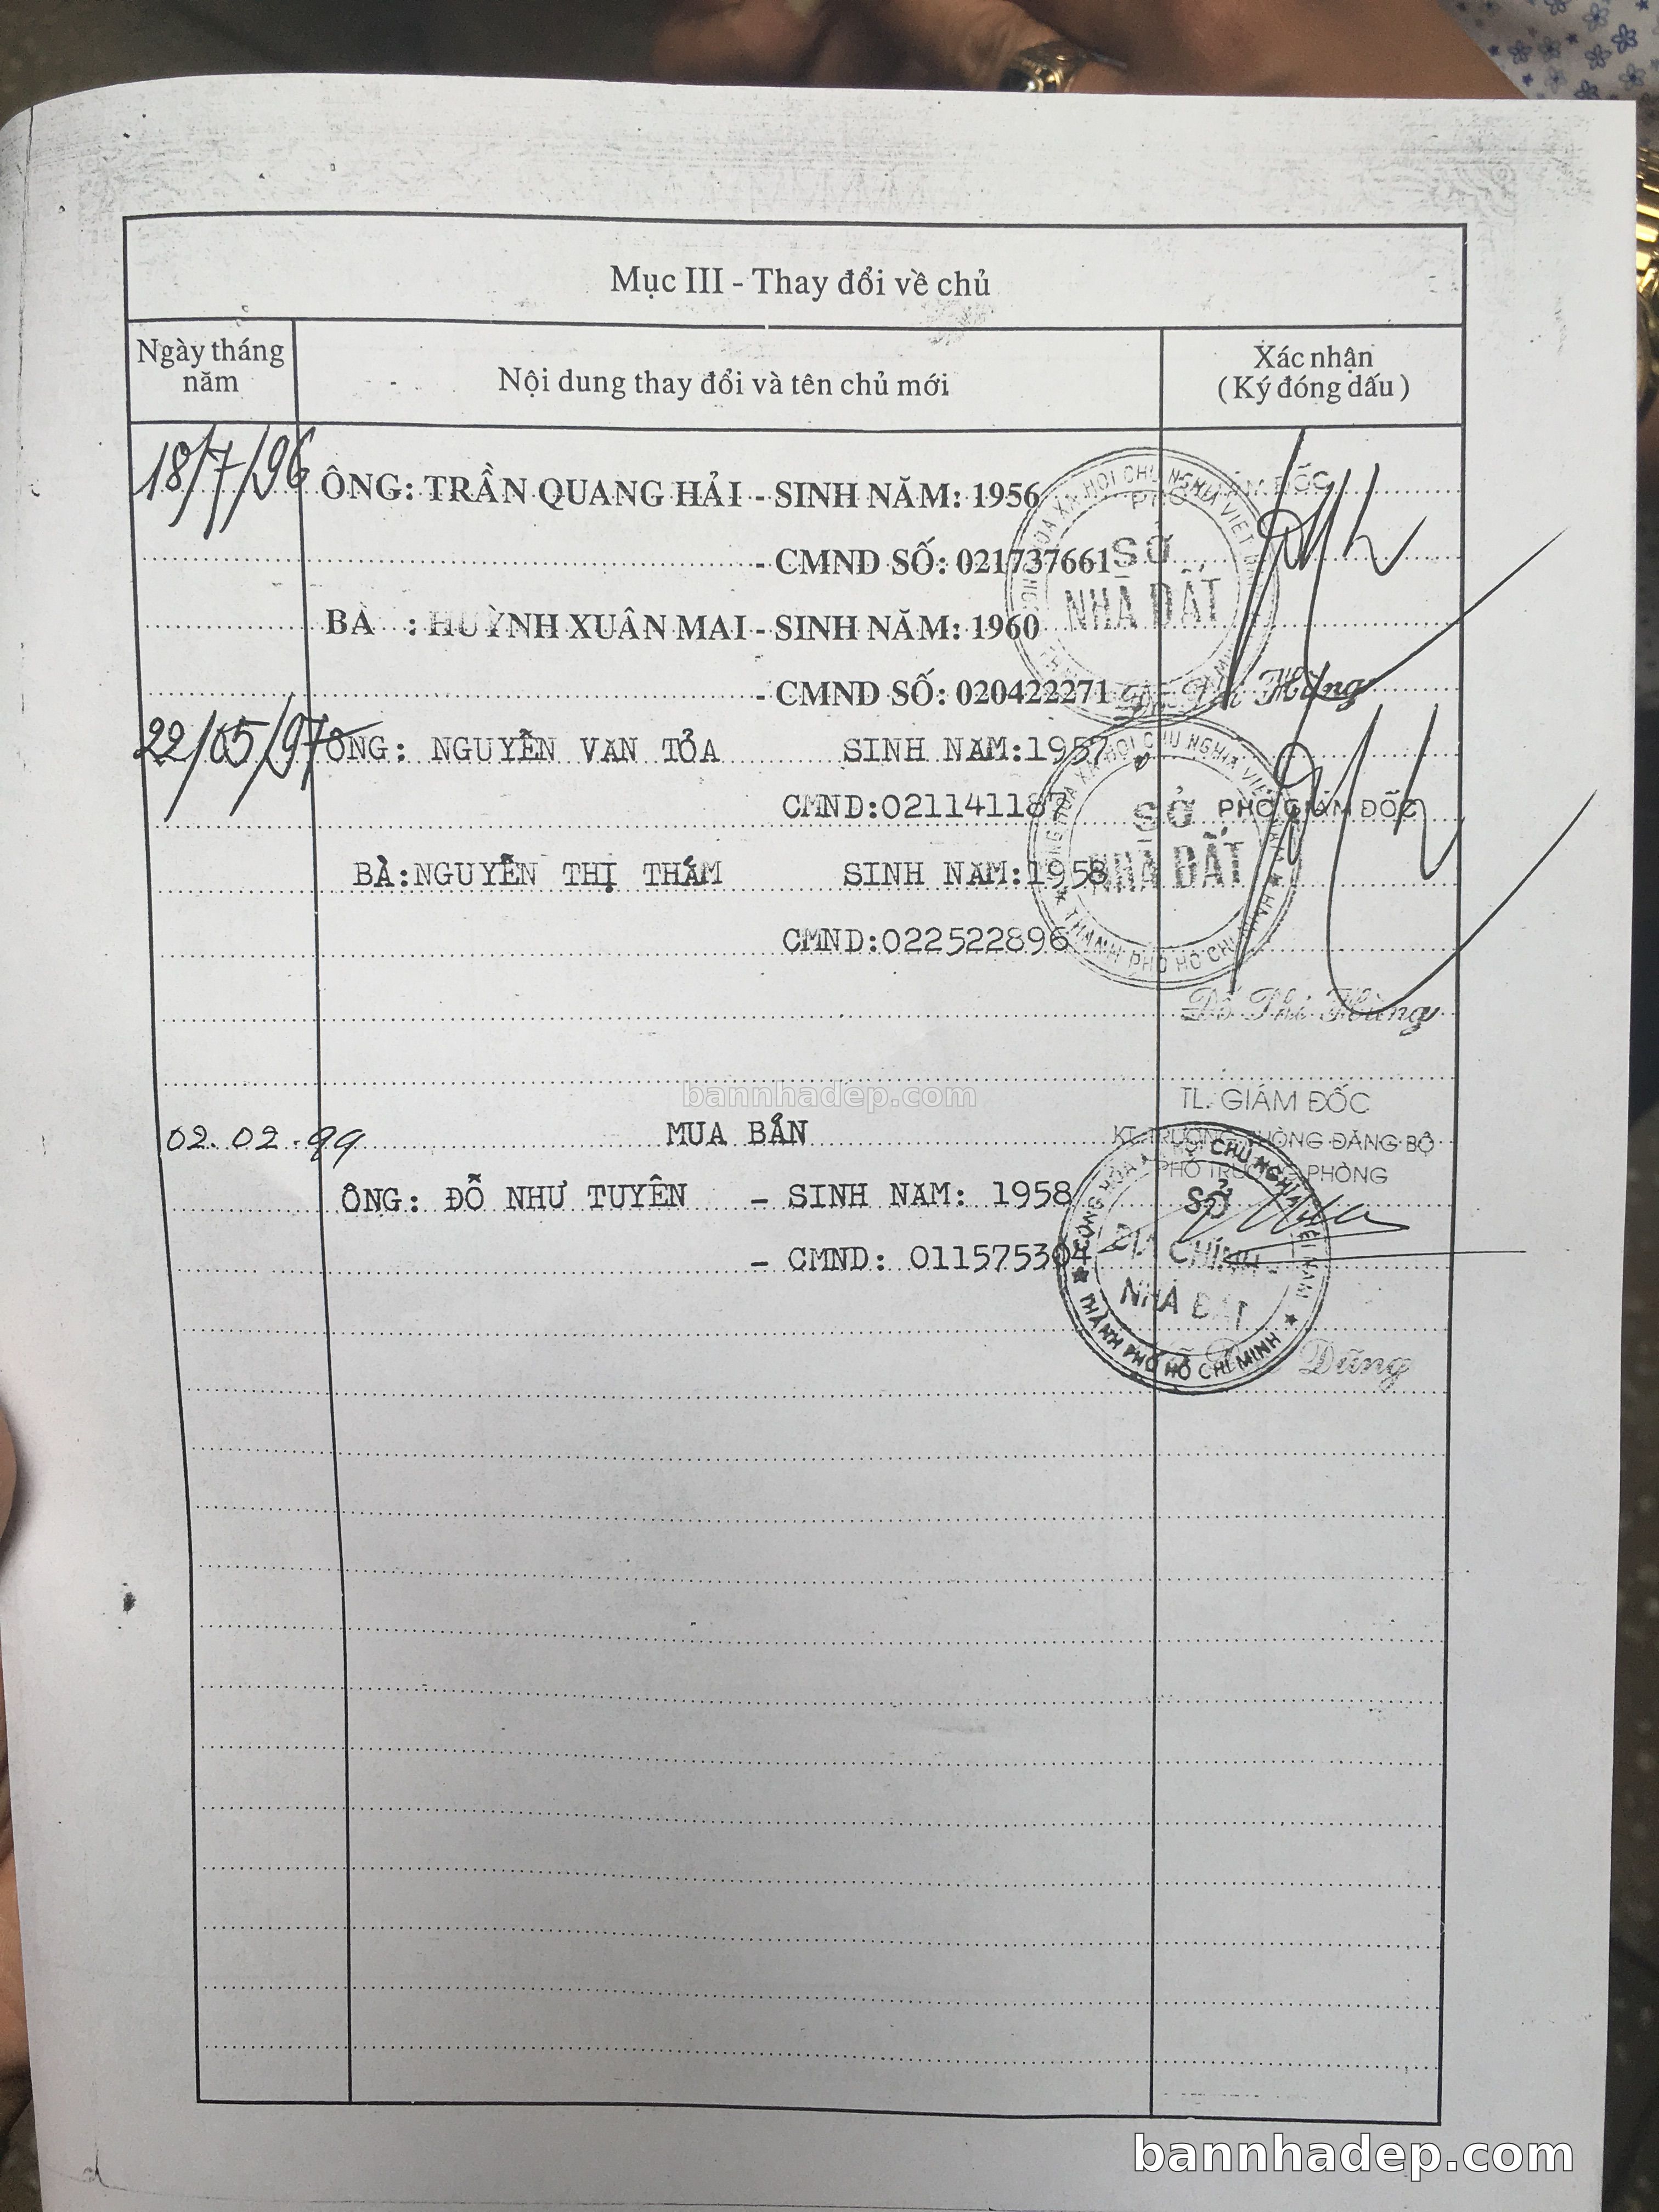 Mục III - Thay đổi về chủ
Ngày tháng năm
Nội dung thay đổi và tên chủ mới
Xác nhận
( Ký đóng dấu )
18/7/96 ÔNG: TRẦN QUANG HẢI - SINH NĂM: 1956
- CMND SỐ: 021737661
BÀ : HUỲNH XUÂN MAI - SINH NĂM: 1960
- CMND SỐ: 020422271
SỞ
NHÀ ĐẤT
22/05/97 ÔNG: NGUYỄN VAN TỎA SINH NAM:1957
CMND:021141187
BÀ:NGUYỄN THỊ THẮM SINH NAM:1958
CMND:022522896
SỞ
NHÀ ĐẤT
THÀNH PHỐ HỒ CHÍ MINH
PHÓ GIÁM ĐỐC
Đỗ Phi Hùng
bannhadep.com
02.02.99 MUA BÁN
ÔNG: ĐỖ NHƯ TUYÊN - SINH NAM: 1958
- CMND: 011575304
TL. GIÁM ĐỐC
KT. TRƯỞNG PHÒNG ĐĂNG BỘ
PHÓ TRƯỞNG PHÒNG
SỞ
ĐỊA CHÍNH -
NHÀ ĐẤT
THÀNH PHỐ HỒ CHÍ MINH
Dũng
bannhadep.com